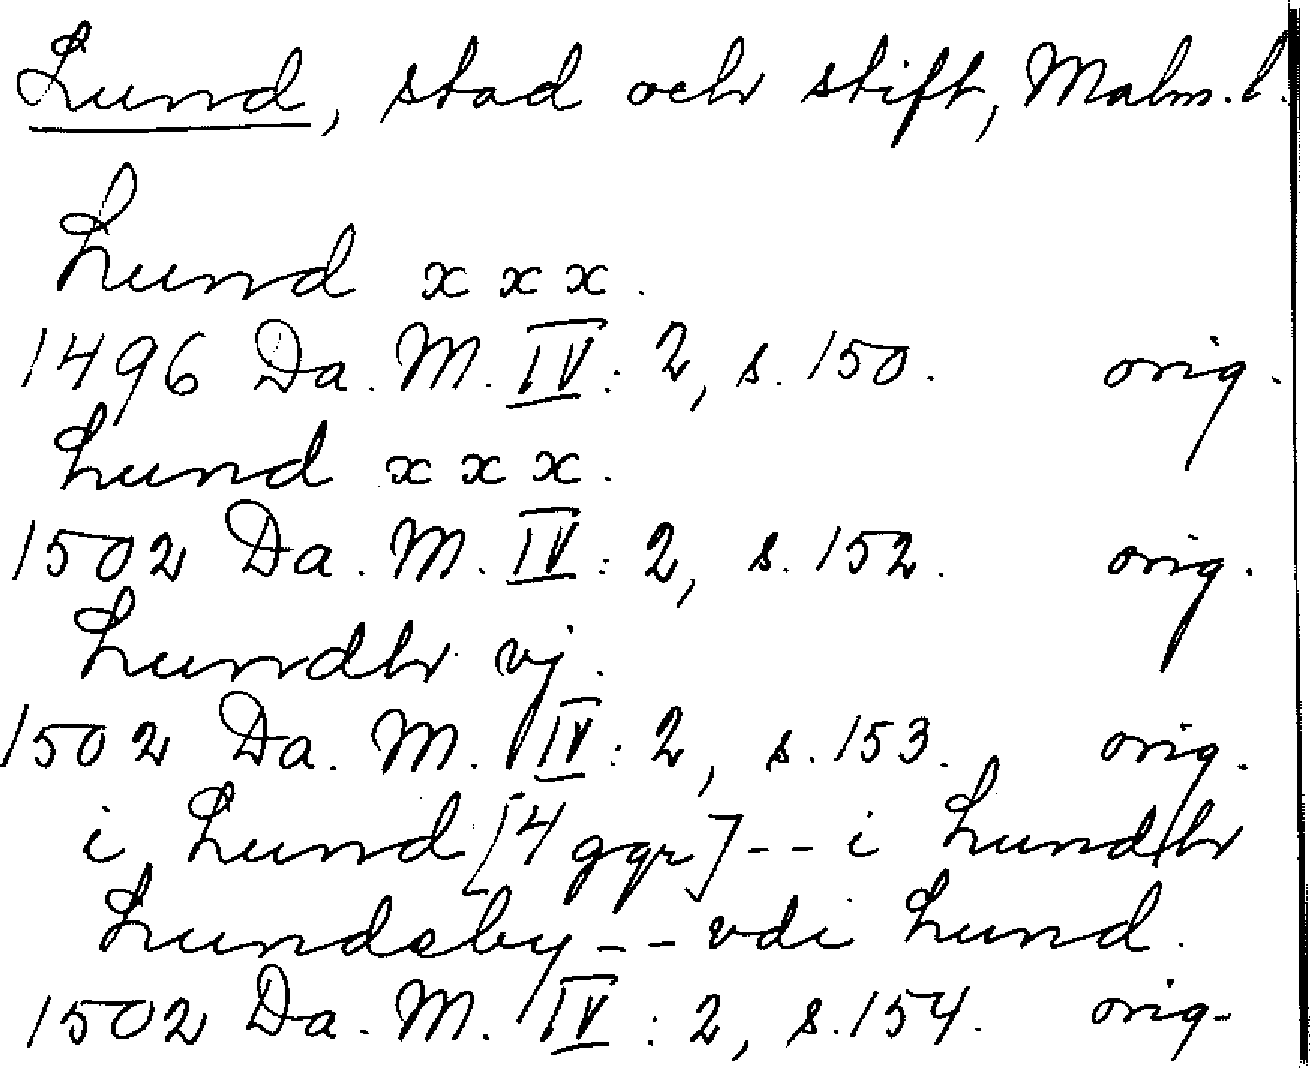 Lund, stad och stift, Malm. l.
Lund x x x.
1496 Da. M. IV: 2, s. 150. orig.
Lund x x x.
1502 Da. M. IV: 2, s. 152. orig.
Lundh vj.
1502 Da. M. IV: 2, s. 153. orig.
i Lund [4 ggr] -- i Lundh
Lundsby -- vdi Lund.
1502 Da. M. IV: 2, s. 154. orig.